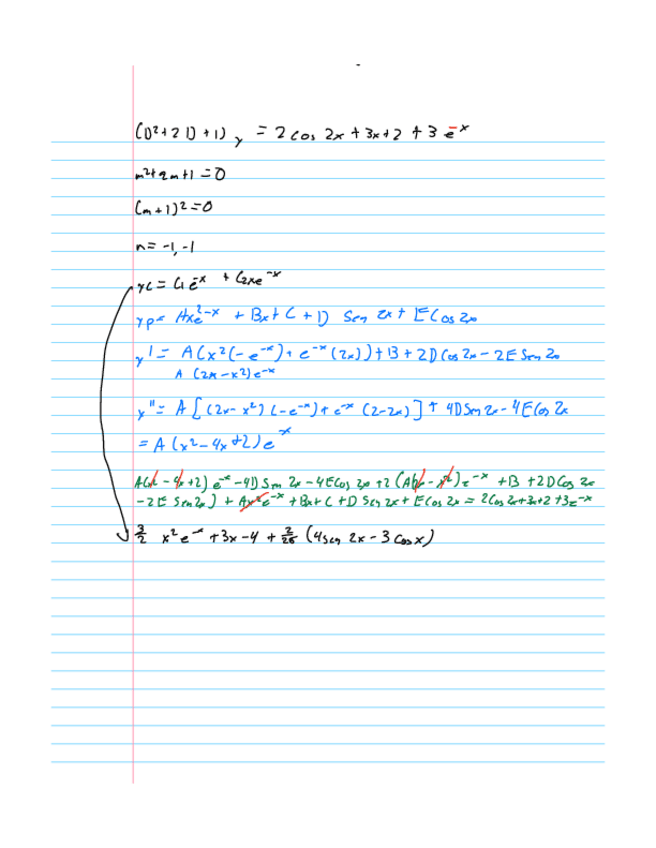 (D²+2D+1)y = 2cos 2x+3x+2+3e⁻ˣ
m²+2m+1=0
(m+1)²=0
n= -1,-1
yc= C₁e⁻ˣ + C₂xe⁻ˣ
yp= Ax²e⁻ˣ + Bx+C+D Sen 2x+ECos2x
y'= A(x²(-e⁻ˣ)+e⁻ˣ(2x))+B+2DCos2x-2ESen2x
A (2x-x²)e⁻ˣ
y''= A[(2x-x²)(-e⁻ˣ)+e⁻ˣ(2-2x)]+4DSen2x-4ECos2x
= A(x²-4x+2)e⁻ˣ
A(x²-4x+2)e⁻ˣ-4DSen2x-4ECos2x+2(A(2x-x²)e⁻ˣ+B+2DCos2x
-2ESen2x)+Ax²e⁻ˣ+Bx+C+DSen2x+ECos2x=2Cos2x+3x+2+3e⁻ˣ
3/2 x²e⁻ˣ+3x-4+2/25 (4sen2x-3Cosx)